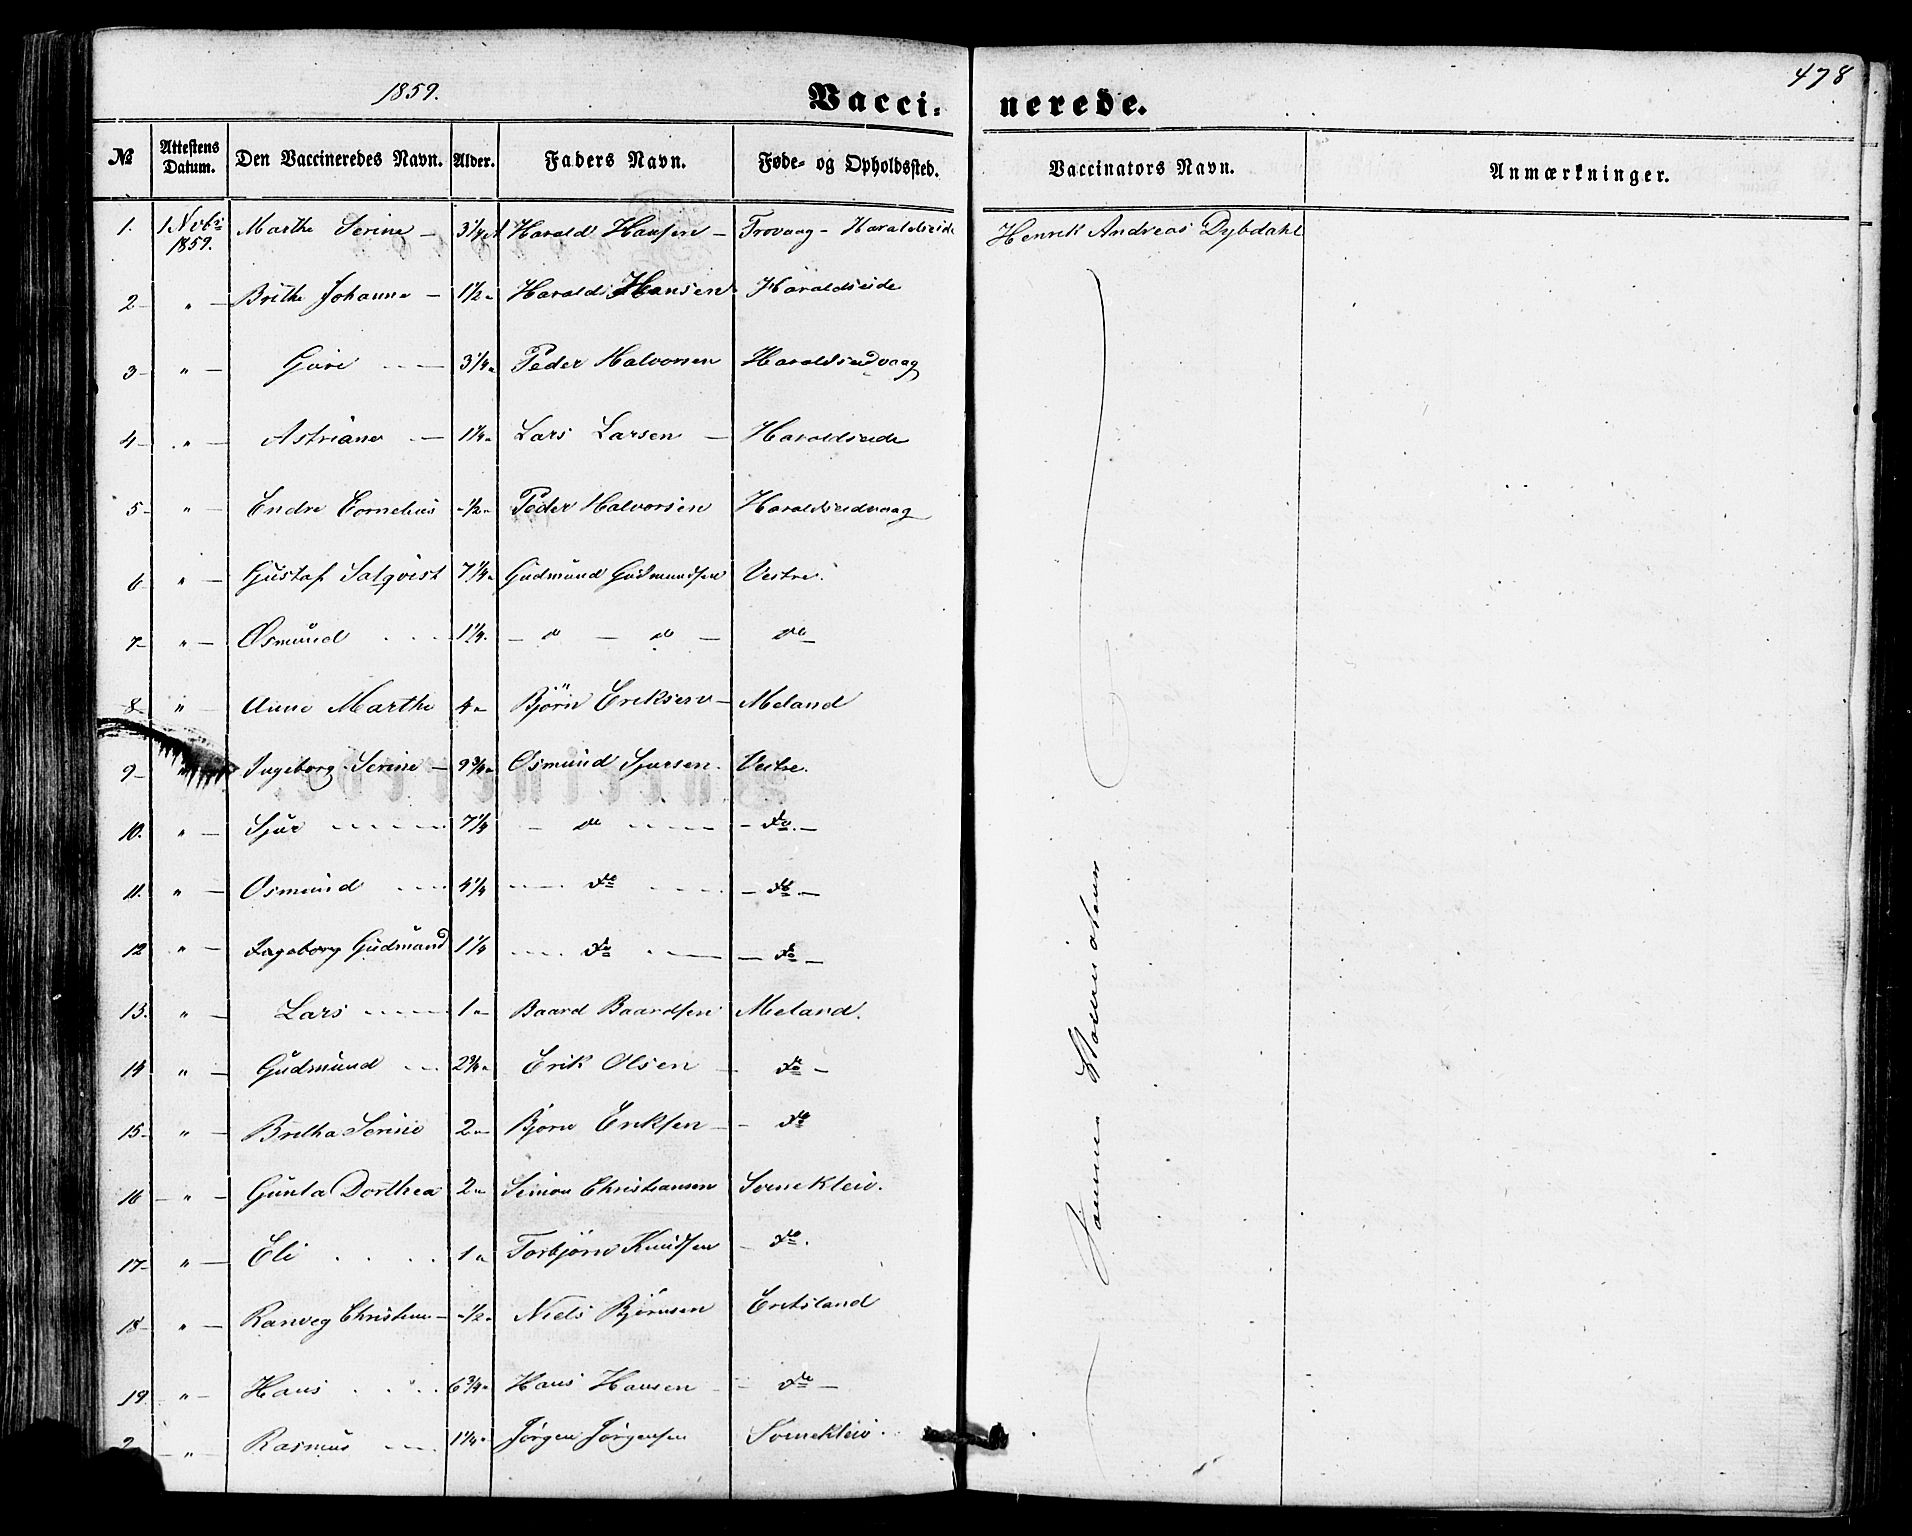 1859.
478
Vacci- nerede.
№ Attestens Datum. Den Vaccineredes Navn. Alder. Faders Navn. Føde- og Opholdssted. Vaccinators Navn. Anmærkninger.
1. 1 Novbr 1859. Marthe Serine - 3¼ A Harald Hansen - Trovaag - Haraldseide Henrik Andreas Dybdahl
2 - " - Brithe Johanne - 1½ " Harald Hansen Haraldseide
3 - " - Guri - 3¼ " Peder Halvorsen Haraldseidvaag
4 - " - Astriane - 1¼ " Lars Larsen - Haraldseide
5 - " - Endre Cornelius - ½ " Peder Halvorsen Haraldseidvaag
6 - " - Gustaf Salqvist 7¼ " Gudmund Gudmundsen Vestre.
7 - " - Osmund 1¼ - do - do - do
8 - " - Anne Marthe 4 " Bjørn Eriksen - Meland
9 - " Ingeborg Serine - 9¾ " Osmund Sjursen. Vestre.
10. " - Sjur 7¼ - do - do -
11. " - Osmund 4¼ - do - do -
12 " - Ingeborg Gudmund 1¼ - do - do -
13. " - Lars 1 " Baard Baardsen Meland.
14 " - Gudmund 2¾ " Erik Olsen - do -
15 - " - Britha Serine 2 " Bjørn Eriksen - do
16 - " - Gunla Dorthea 2 " Simon Christiansen Sornekleiv.
17 - " - Eli 1 " Torbjørn Knudsen - do.
18 - " - Ranveg Christine - ½ " Niels Bjørnsen Eritsland
19 " - Hans 6¾ " Hans Hansen - do -
2 - " - Rasmus 1¼ " Jørgen Jørgensen Sornekleiv.